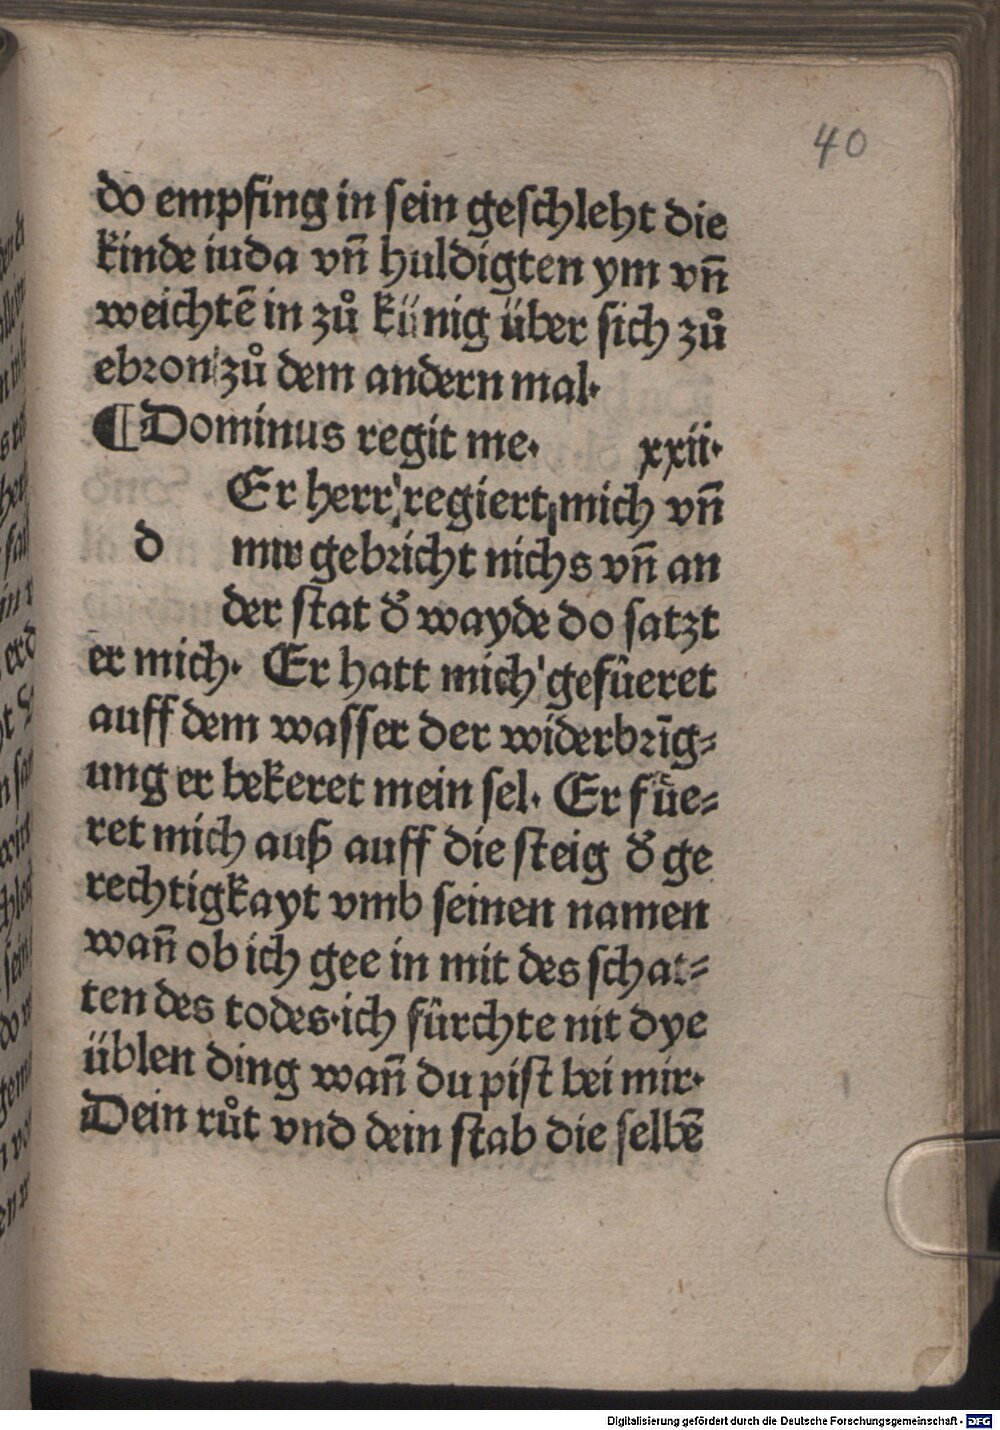 40
do empfing in sein geschleht die
kinde iuda vñ huldigten ym vñ
weichtē in zů künig über sich zů
ebron zů dem andern mal·
¶Dominus regit me· xxii·
Er herr regiert mich vñ
d mir gebricht nichs vñ an
der stat d̕ wayde do satzt
er mich· Er hatt mich gefûeret
auff dem wasser der widerbrīg⸗
ung er bekeret mein sel· Er fûe⸗
ret mich auß auff die steig d̕ ge
rechtigkayt vmb seinen namen
wañ ob ich gee in mit des schat⸗
ten des todes·ich fûrchte nit dye
üblen ding wañ du pist bei mir·
Dein růt vnd dein stab die selbē
Digitalisierung gefördert durch die Deutsche Forschungsgemeinschaft - DFG